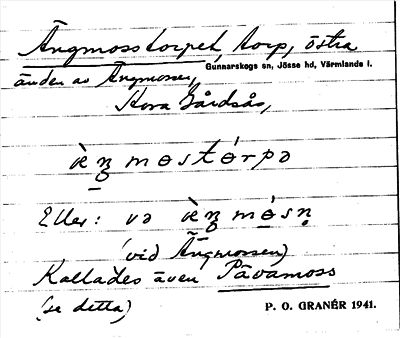 Ängmosstorpet, torp, östra
Gunnarskogs sn, Jösse hd, Värmlands l.
änden av Ängmossen,
Kora Gårdsås,
Eller: və
(vid Ängmossen)
Kallades även Påvamoss
(se detta)
P. O. GRANÉR 1941.